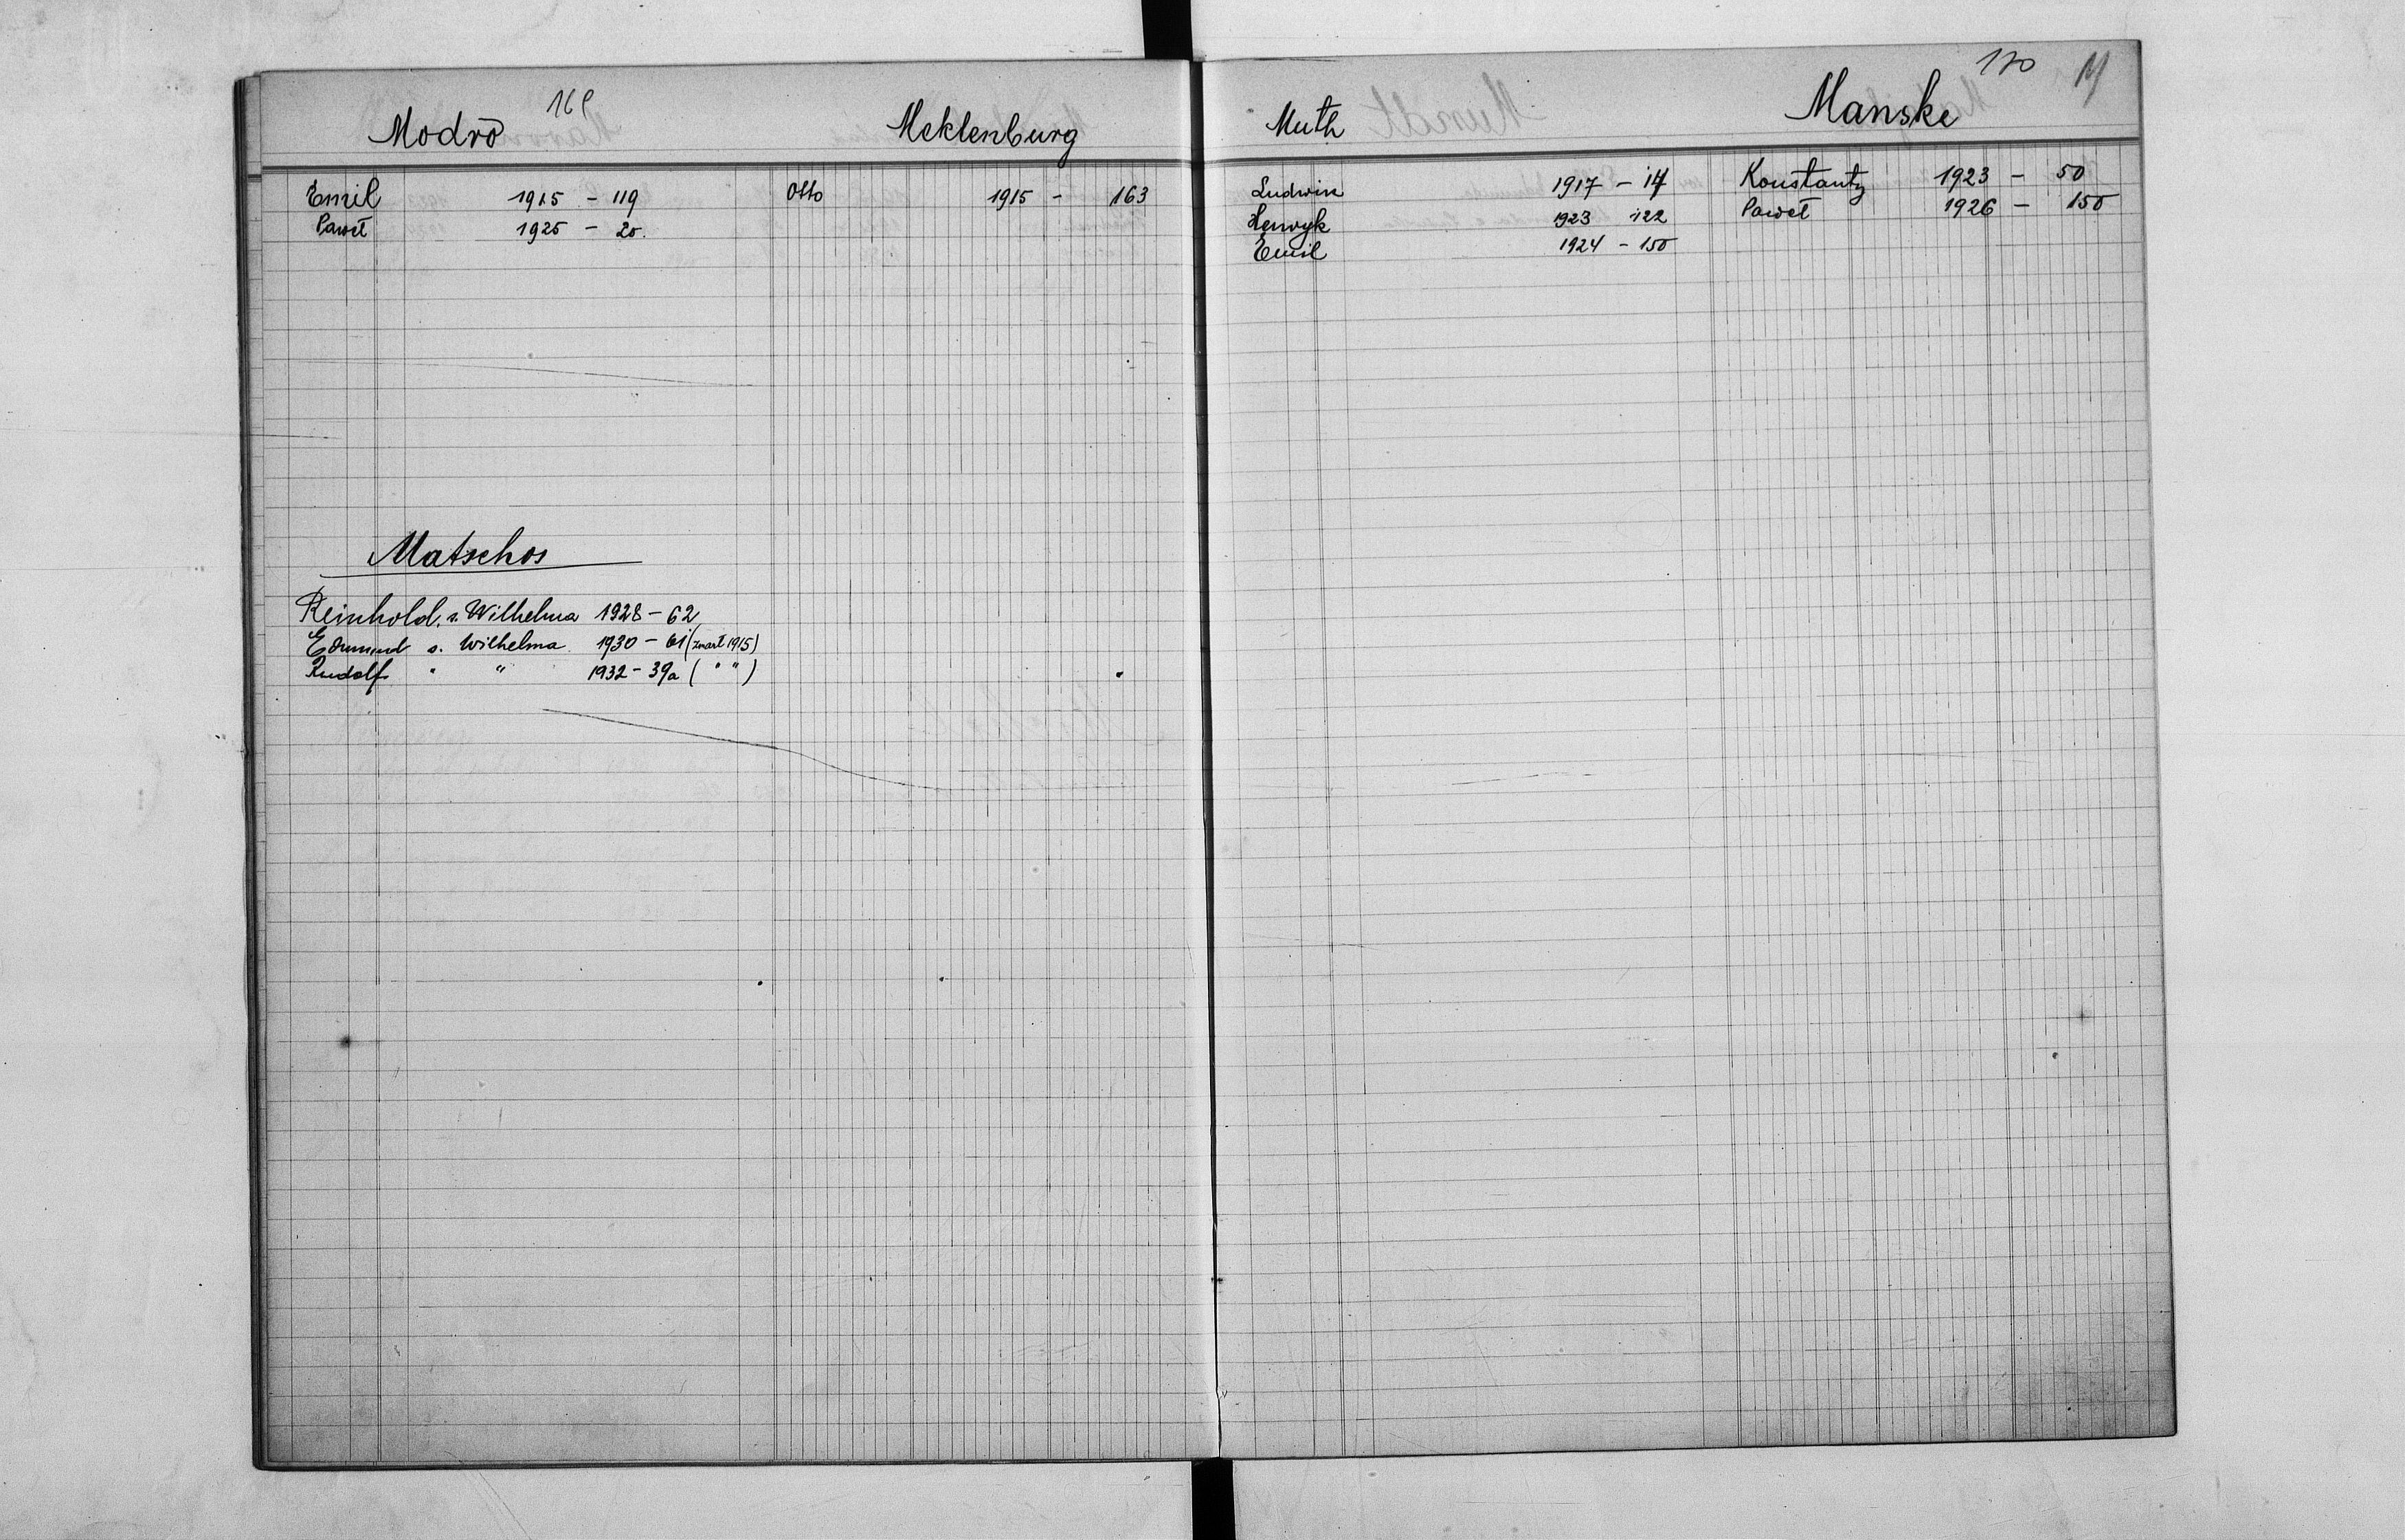 169
Modrò
Emil 1915 - 119
Paweł 1925 - 20.
Meklenburg
Otto 1915 - 163
Matschos
Reinhold, s. Wilhelma 1928 - 62
Edmund s. Wilhelma 1930 - 61 (zmarł 1915)
Rudolf " " 1932 - 39a ( " " )
170 M
Muth
Ludwik 1917 - 14
Henryk 1923 122
Emil 1924 - 150
Manske
Konstanty 1923 - 50
Paweł 1926 - 150